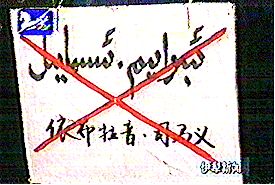 ئىبرايىم. ئىسمايىل
依布拉音·司马义
伊犁新闻